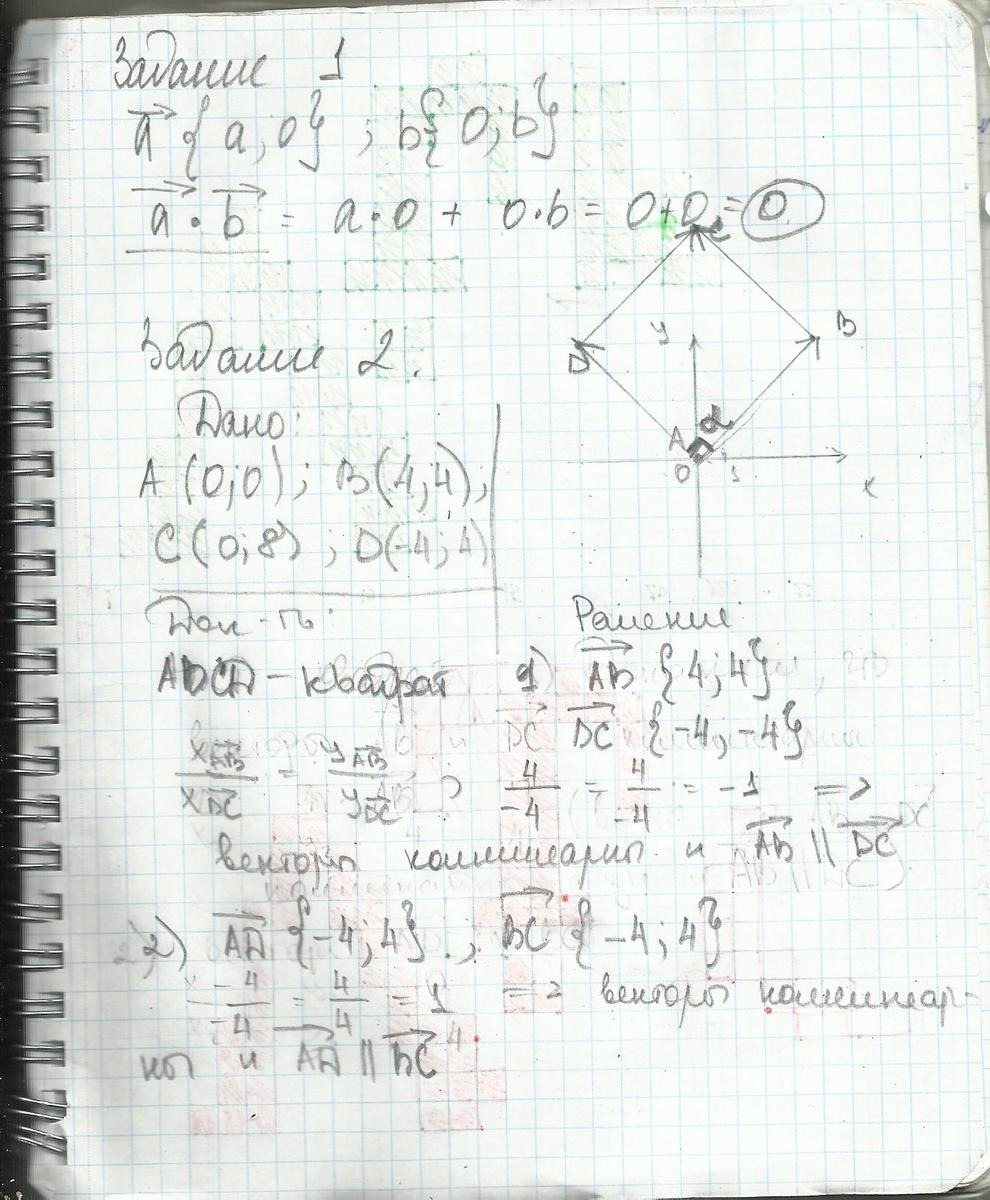 Задание 1
a⃗ {a; 0} ; b{0; b}
a⃗ · b⃗ = a·0 + 0·b = 0+0 = 0
Задание 2.
Дано:
A (0;0); B(4;4);
C (0;8) ; D(-4;4)
C
y
D
B
α
A
0
1
x
Док-ть:
ABCD – квадрат
Решение:
1) AB⃗ {4; 4}
DC⃗ DC⃗ {-4; -4}
x AB⃗ / x DC⃗ = y AB⃗ / y DC⃗ ; 4/-4 = 4/-4 = -1 =>
векторы коллинеарны и AB⃗ || DC⃗
2) AD⃗ {-4; 4} ; BC⃗ {-4; 4}
-4/-4 = 4/4 = 1 => векторы коллинеар-
ны и AD⃗ || BC⃗